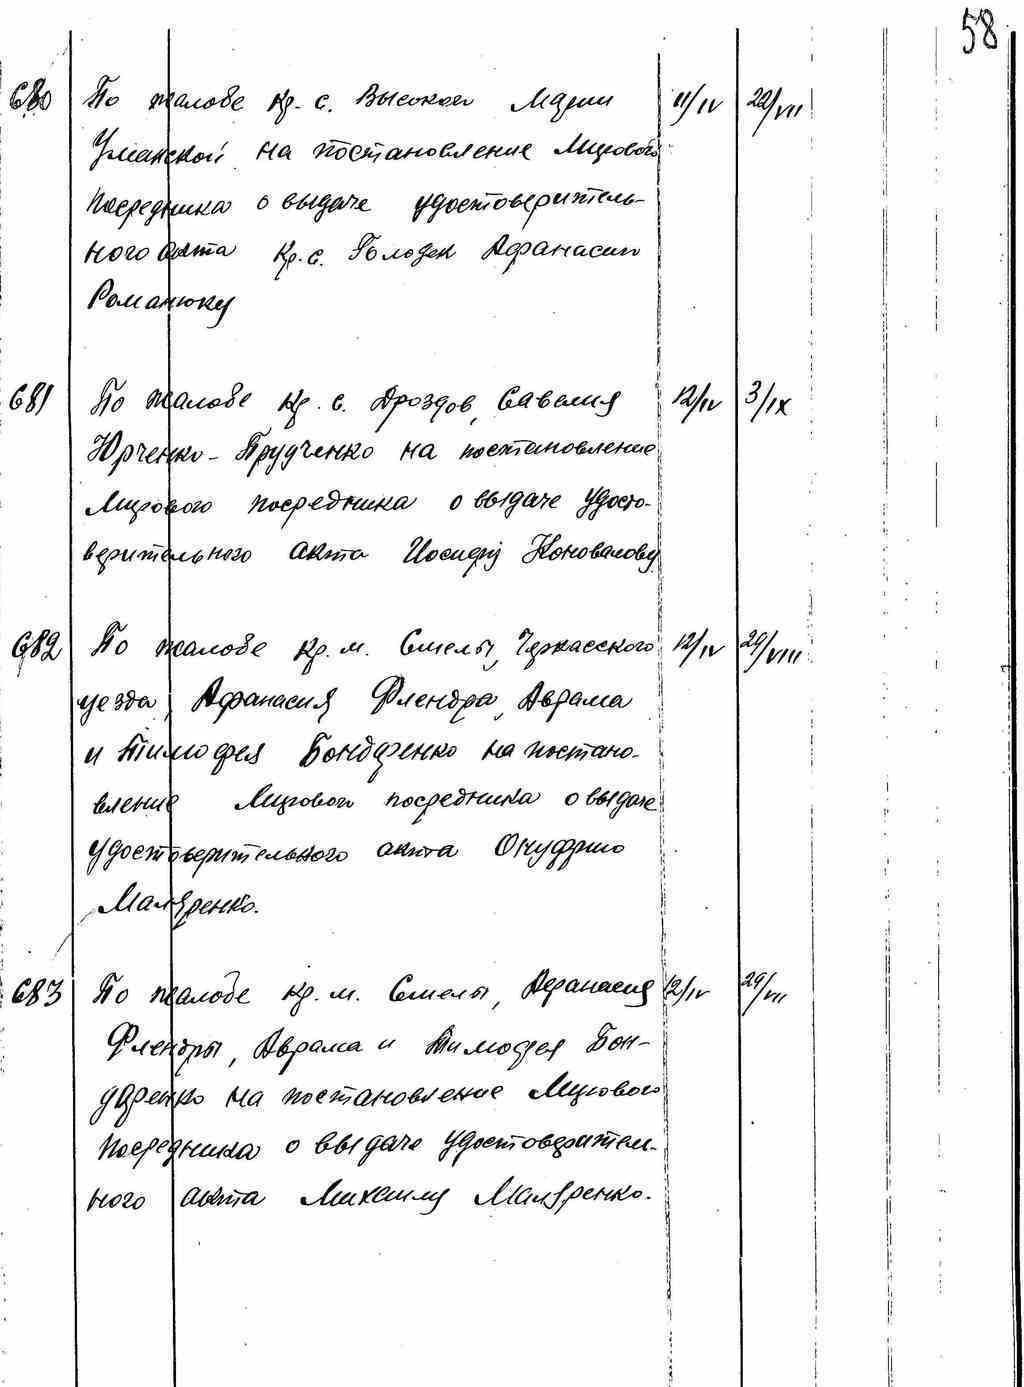 58
680 По жалобе кр. с. Высокого Марии 11/IV 22/VII
Уманской на постановление Мирового
Посредника о выдаче удостоверитель-
ного акта кр. с. Голодек Афанасию
Романюку
681 По жалобе кр. с. Дроздов, Савелия 12/IV 3/IX
Юрченко-Прудченко на постановление
Мирового посредника о выдаче удосто-
верительного акта Иосифу Коновалову
682 По жалобе кр. м. Смелы, Черкасского 12/IV 29/VIII
уезда, Афанасия Флендра, Аврама
и Тимофея Бондаренко на постано-
вление Мирового посредника о выдаче
удостоверительного акта Онуфрию
Маляренко.
683 По жалобе кр. м. Смелы, Афанасия 12/IV 29/VII
Флендры, Аврама и Тимофея Бон-
даренко на постановление Мирового
Посредника о выдаче удостоверитель-
ного акта Михаилу Маляренко.